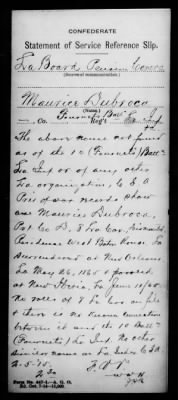 CONFEDERATE
Statement of Service Reference Slip.
La Board, Pension Comrs
(Source of communication.)
Maurice Dubroca
Co. Regt La Inf
The above name not found
as of the 10 (Yellow's) Batt
La Inf or of any other
La organization, C S A
Pris of war records show
one Maurice Dubroca,
Pvt Co B, 8 La Cav.
Residence West Baton Rouge La
surrendered at New Orleans
La May 26, 1865 & paroled
at New Iberia, La June 1865
No rolls of 8 La Cav on file
& there is no known connection
between it and the 10 Batt
La Inf. No other
similar name on La Index C S A
2-5-15
Form No. 447-1—A. G. O.